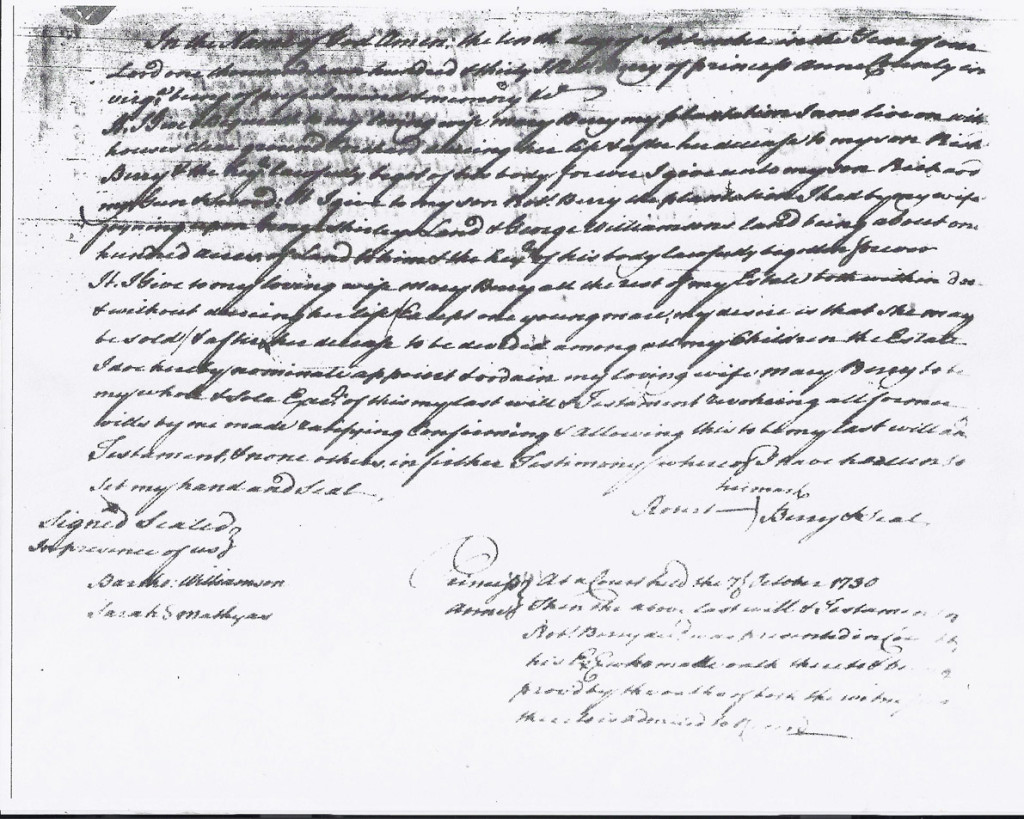 In the Name of God Amen. the tenth day of September in the Year of our
Lord one thousand seven hundred & thirty I Robt. Berry of princess Anne County in
virga. being of perfect mind & memory &c
It. I Give & bequeath to my loving wife Mary Berry my plantation I now live on with
houses clear ground & orchard during her life & after her decease to my son Rich
Berry & the heyrs lawfully begot of his body for ever I give unto my son Richard
my Gun & Sword: It I give to my son Robt. Berry the plantation I had by my wife
joyning upon Land & George Williamsons land being about one
hundred acres of Land to him & the heyrs of his body lawfully begotten for ever
It. I Give to my loving wife Mary Berry all the rest of my Estate both within
& without during her life (Except one young mare, my desire is that she may
be sold) & after her decease to be divided among all my Children the Estate
I doe hereby nominate appoint & ordain my loving wife Mary Berry to be
my whole & Sole Exec. of this my last will & Testament revokeing all former
wills by me made ratifying Confirming & Allowing this to be my last will an
Testament, & none others, in further Testimony whereof I have hereunto
set my hand and Seal
his mark
Robert Berry & Seal
Signed Sealed
In presence of us
Bartho: Williamson
Sarah Mathyas
Princess Anne At a Court held the 7 October 1730
Then the above last will & Testament
Robt. Berry decd. was presented in Court
his Ex who made oath thereto &
provd by the oaths of both the witnesses
thereto is admited to Record